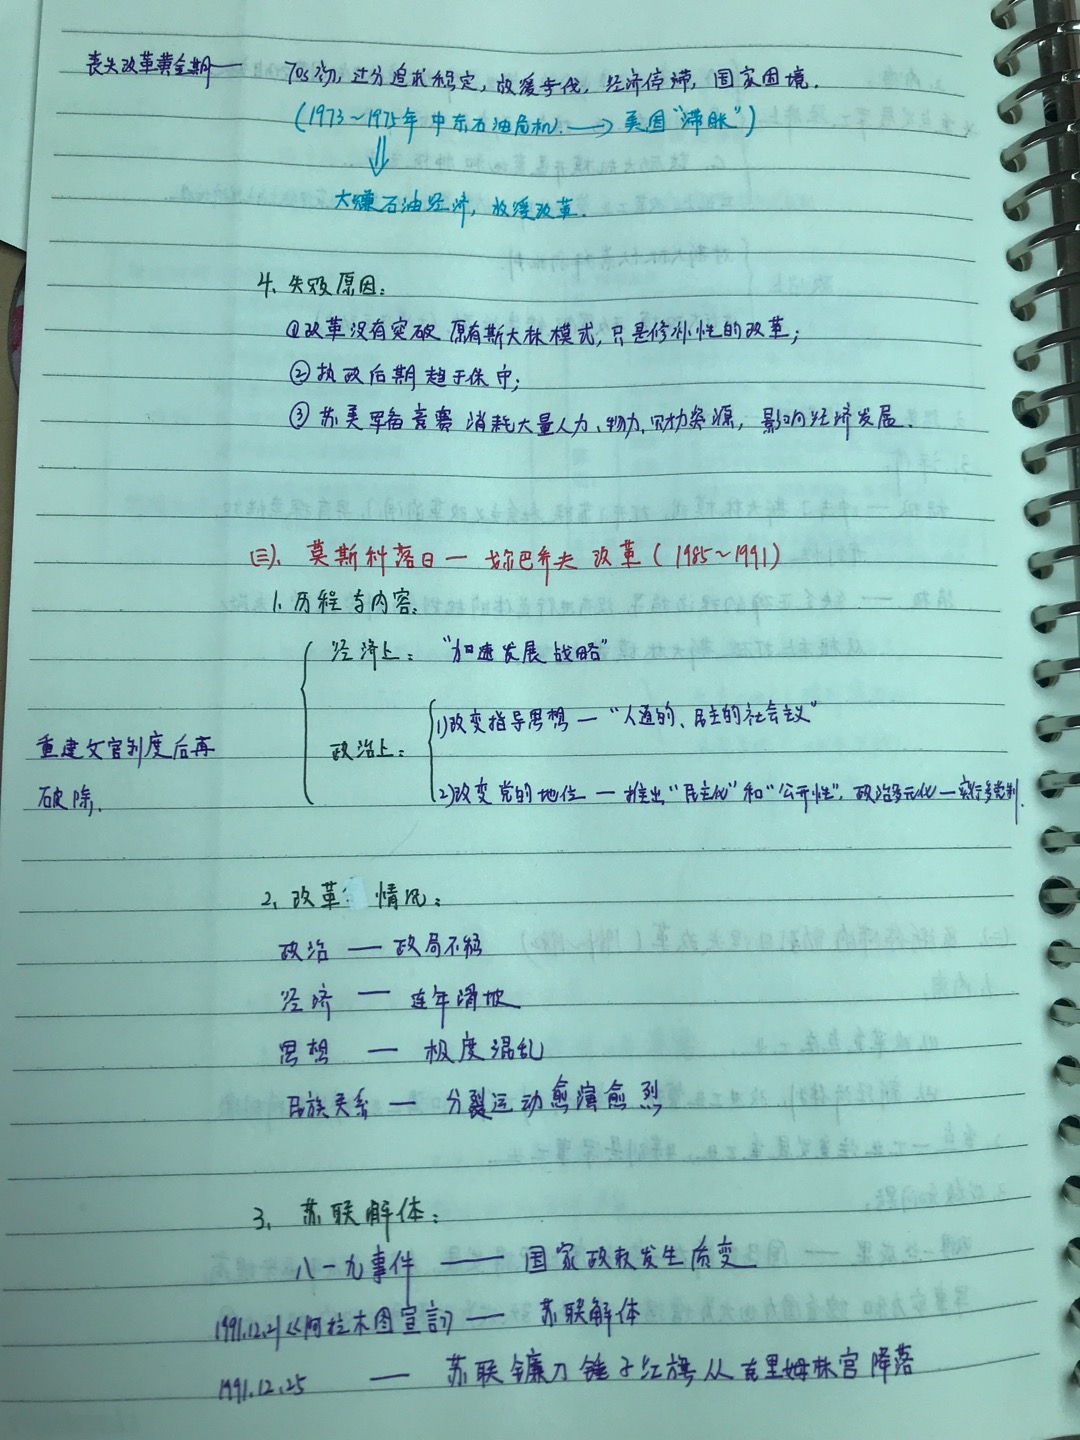 丧失改革黄金期—— 70s初,过分追求稳定,放缓步伐,经济停滞,国家困境.
(1973~1975年中东石油危机.→美国"滞胀")
⇓
大赚石油经济,放缓改革.
4.失败原因:
①改革没有突破原有斯大林模式,只是修补性的改革;
②执政后期趋于保守;
③苏美军备竞赛消耗大量人力、物力、财力资源,影响经济发展.
(三).莫斯科落日—戈尔巴乔夫改革(1985~1991)
1.历程与内容.
经济上:"加速发展战略"
1)改变指导思想—"人道的、民主的社会主义"
政治上:
重建文官制度后再
破除.
2)改变党的地位—推出"民主化"和"公开性",政治多元化—实行多党制.
2.改革情况:
政治——政局不稳
经济——连年滑坡
思想——极度混乱
民族关系——分裂运动愈演愈烈
3.苏联解体:
八一九事件——国家政权发生质变
1991.12.21《阿拉木图宣言》——苏联解体
1991.12.25——苏联镰刀锤子红旗从克里姆林宫降落